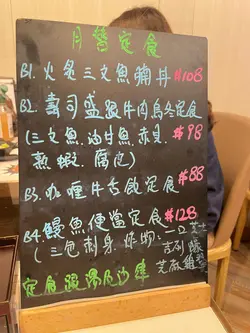 月替定食
B1. 火炙三文魚腩丼 $108
B2. 壽司盛跟牛肉烏冬定食
(三文魚.油甘魚.赤貝. $98
熟蝦. 腐皮)
B3. 咖喱牛舌飯定食 $88
B4. 鰻魚便當定食 $128
(三色刺身 炸物: 一口芝士
吉列蠔
芝麻雞翼
定食跟湯及沙律